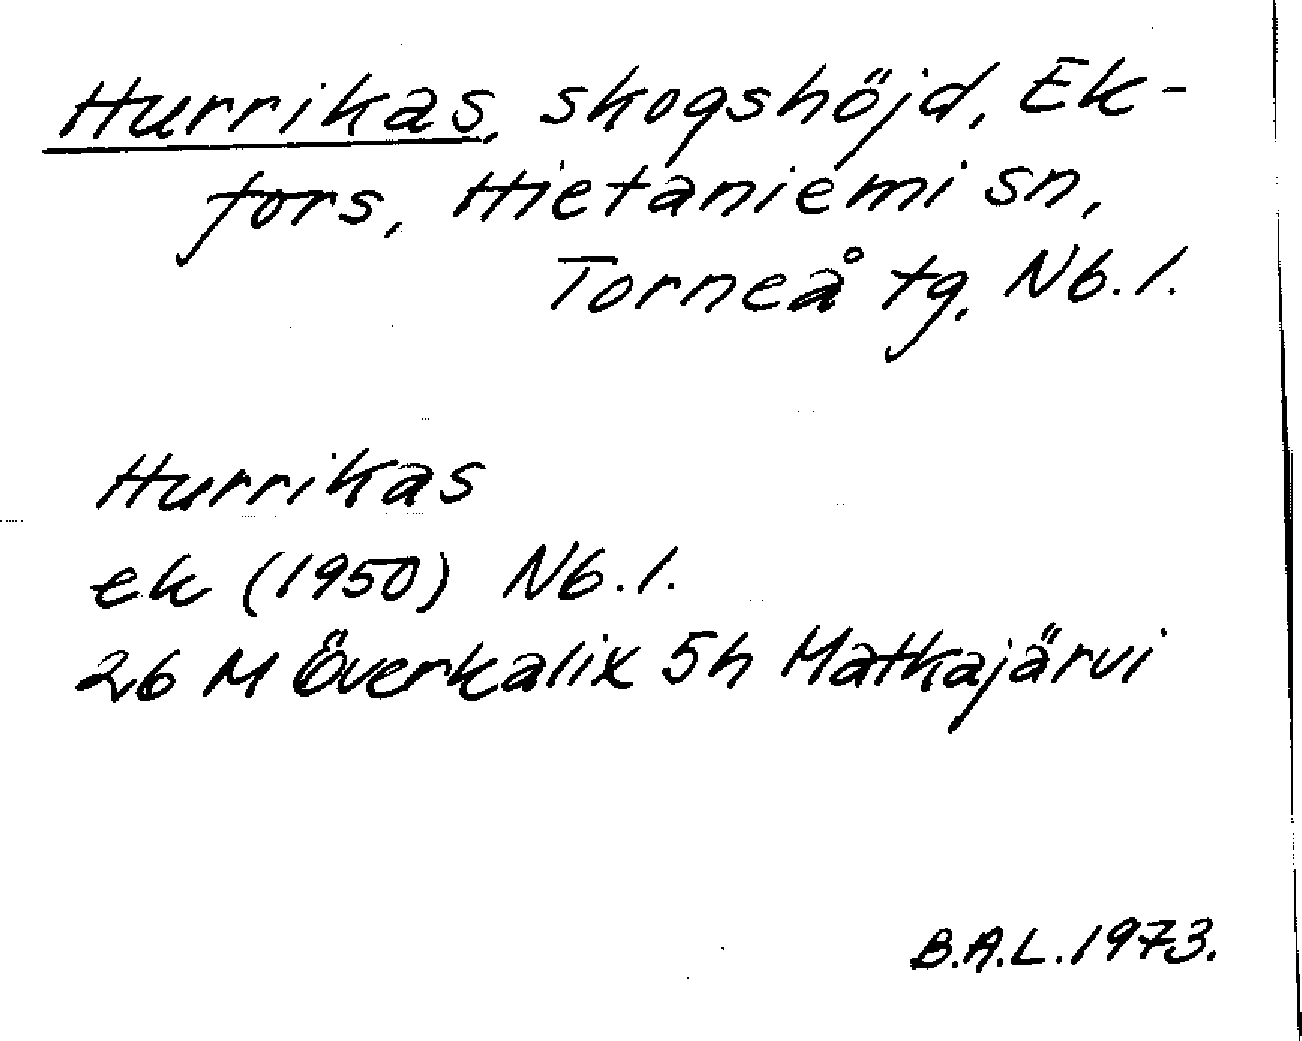 Hurrikas, skogshöjd, Ek-
fors, Hietaniemi sn,
Torneå tg, Nb. l.
Hurrikas
ek (1950) Nb. l.
26 M Överkalix 5h Matkajärvi
B.A.L. 1973.